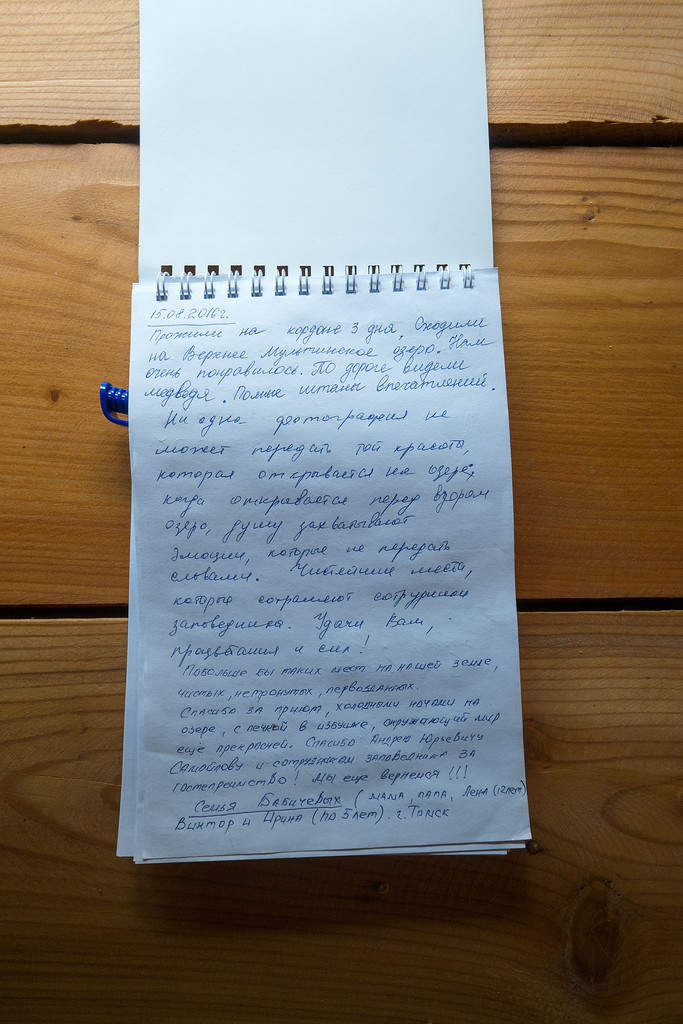 15.08.2016г.
Прожили на кордоне 3 дня. Сходили
на Верхнее Мультинское озеро. Нам
очень понравилось. По дороге видели
медведя. Полные штаны впечатлений.
Ни одна фотография не
может передать той красоты,
которая открывается на озере,
когда открывается перед взором
озеро, душу захватывают
эмоции, которые не передать
словами. Чистейшие места,
которые сохраняют сотрудники
заповедника. Удачи Вам,
процветания и сил!
Побольше бы таких мест на нашей земле,
чистых, нетронутых, первозданных.
Спасибо за приют, холодными ночами на
озере, с печкой в избушке, окружающий мир
еще прекрасней. Спасибо Андрею Юрьевичу
Самойлову и сотрудникам заповедника за
гостеприимство! Мы еще вернемся!!!
Семья Бабичевых (мама, папа, Лена (12лет)
Виктор и Ирина (по 5 лет). г. Томск